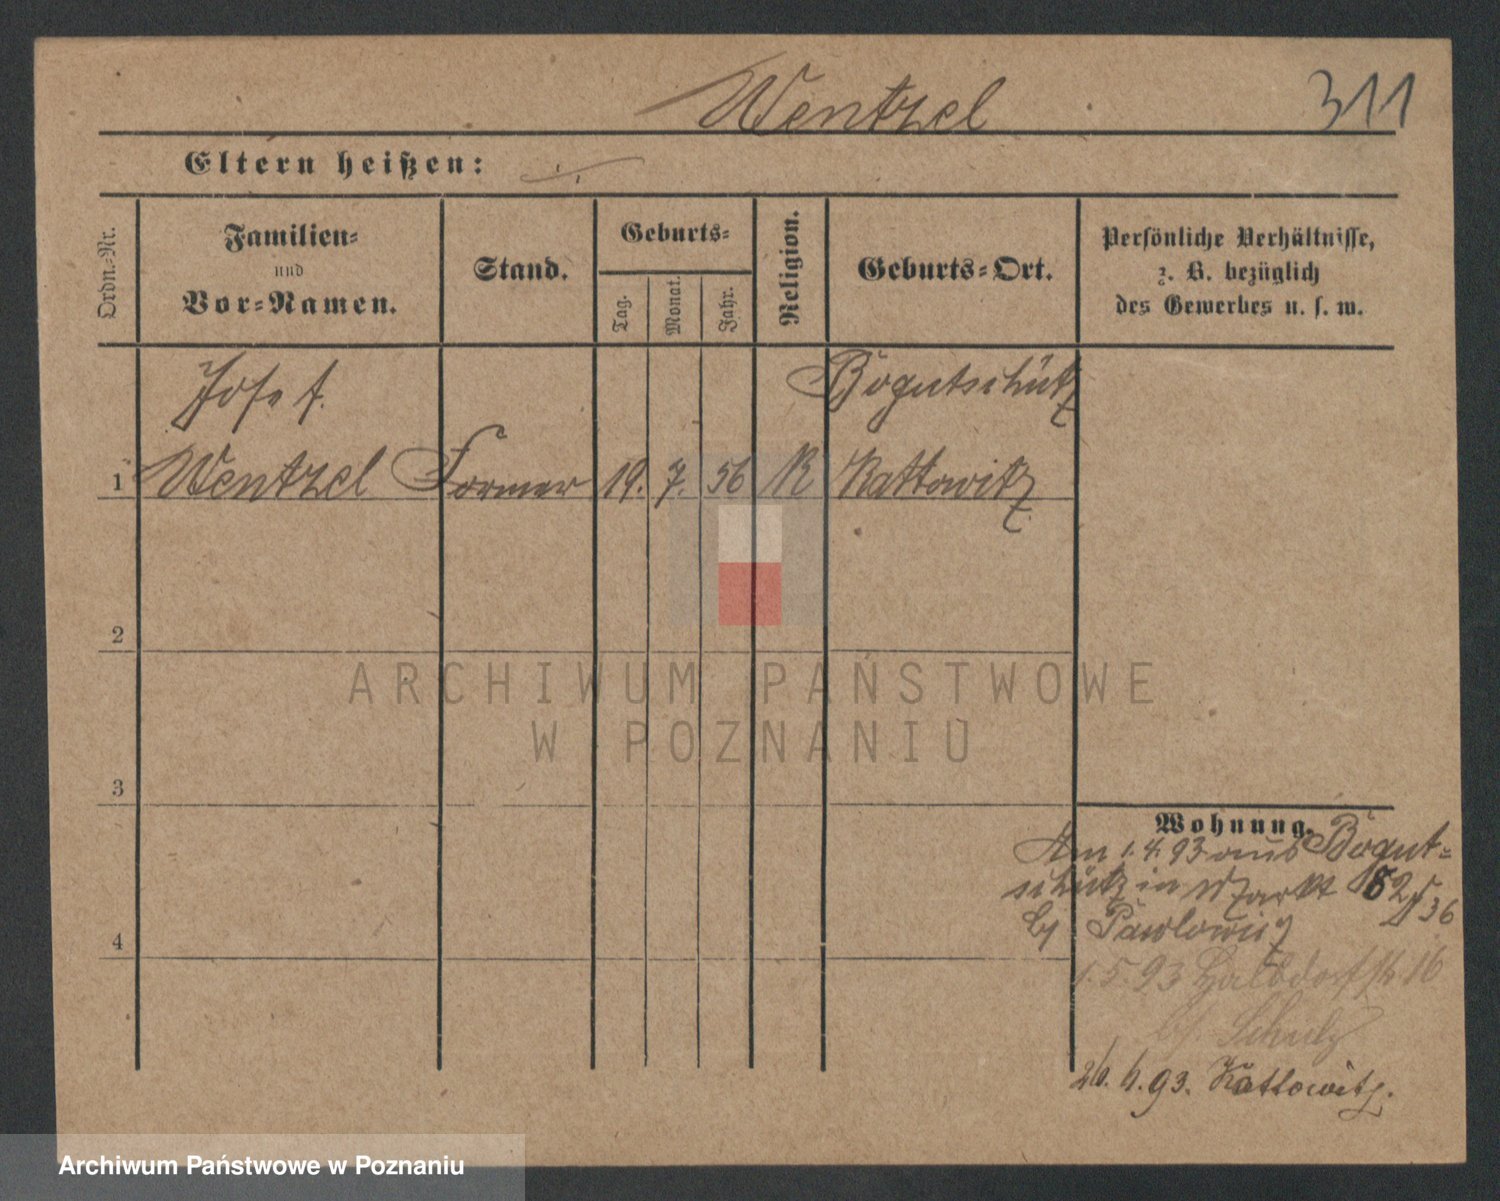 Wentzel
311
Eltern heißen: ./.
Ordn.=Nr.
Familien=
und
Vor=Namen.
Stand.
Geburts=
Tag.
Monat.
Jahr.
Religion.
Geburts=Ort.
Persönliche Verhältnisse,
z. B. bezüglich
des Gewerbes u. s. w.
Josef
Bogutschütz
1 Wentzel Former 19. 7. 56 K Kattowitz
2
3
4
Wohnung.
Am 1.4.93 aus Bogut=
schütz in Markt 52
36
bj Pawlowicz
1.5.93 Halbdorfstr 16
bj. Schulz
26. 6. 93. Kattowitz.
ARCHIWUM PAŃSTWOWE
W POZNANIU
Archiwum Państwowe w Poznaniu